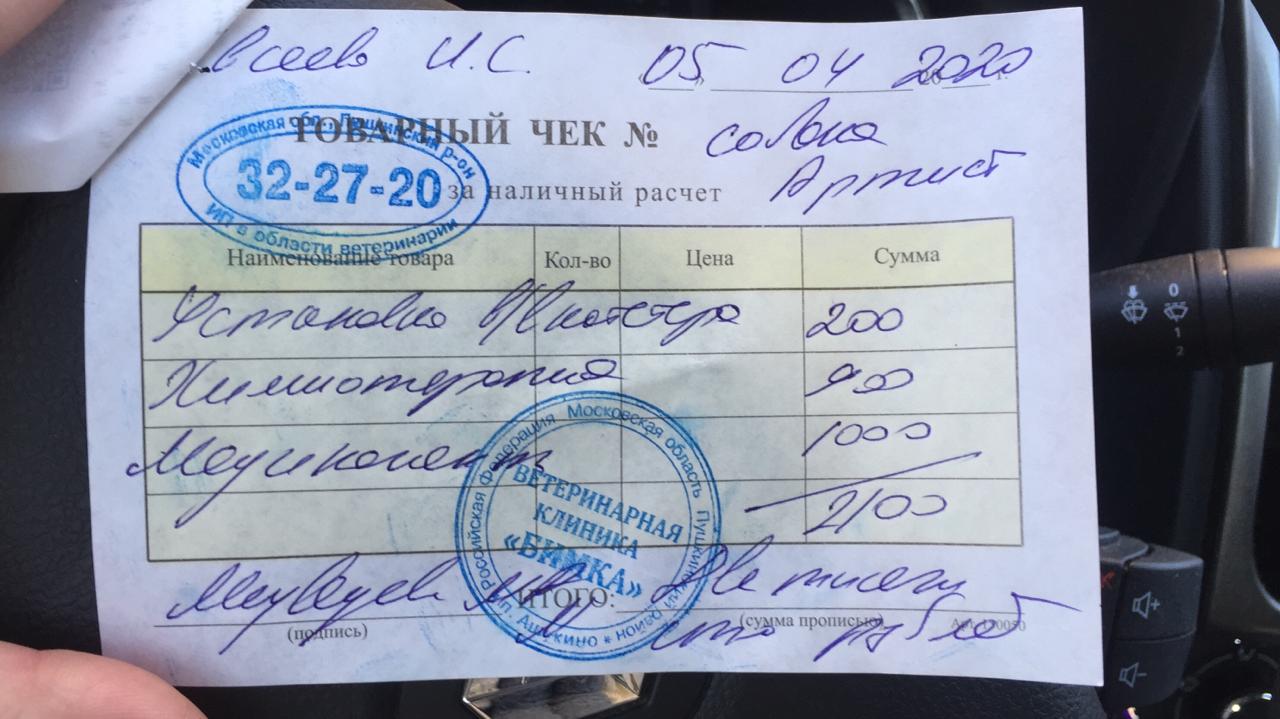 всеев И.С. 05 04 2020 г.
ТОВАРНЫЙ ЧЕК №
собака
за наличный расчет
Артист
Московская обл., Пушкинский р-он
32-27-20
ИП в области ветеринарии
Наименование товара Кол-во Цена Сумма
Установка в/в катетера 200
Химиотерапия 900
Медикаменты 1000
2100
Российская Федерация Московская область Пушкинский район
ВЕТЕРИНАРНАЯ
КЛИНИКА
«БИМКА»
п. Ашукино
Медведев ИТОГО: Две тысячи
(подпись) (сумма прописью)
сто рублей